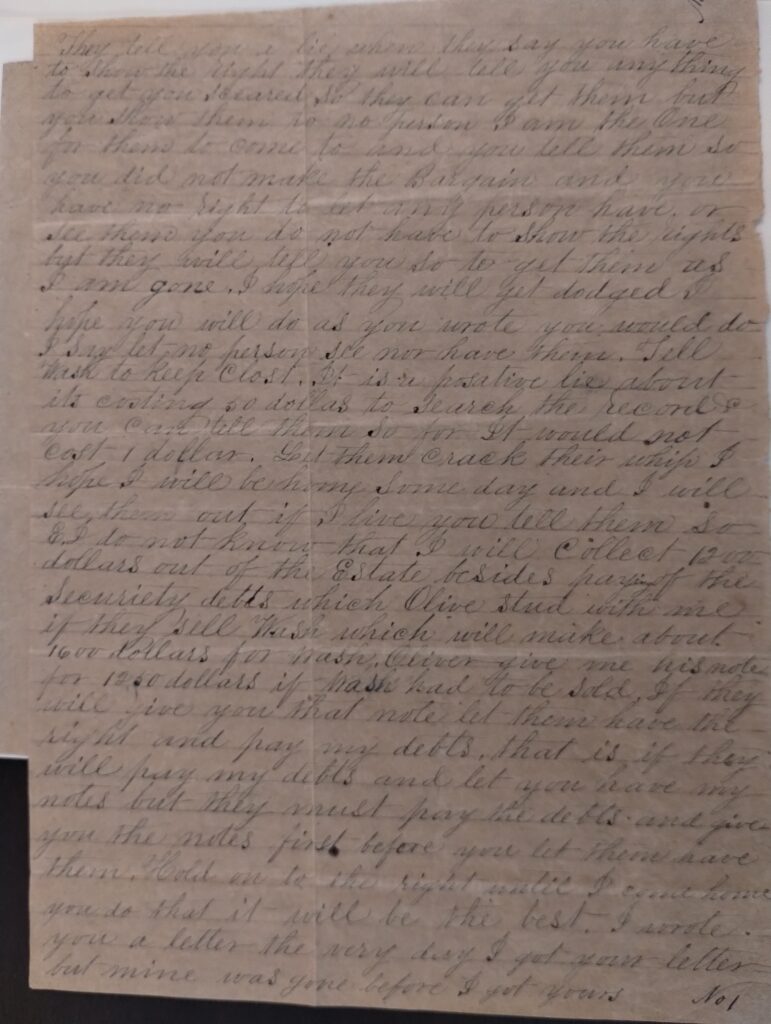 They tell you a lie when they say you have
to show the right they will tell you any thing
to get you sceared so they can get them but
you show them to no person I am the One
for them to come to and you tell them so
you did not make the Bargain and you
have no right to let any person have or
see them you do not have to show the rights
but they will tell you so to get them as
I am gone. I hope they will get dodged I
hope you will do as you wrote you would do
I say let no person see nor have them. Tell
Wash to keep Clost. It is a posative lie about
its costing 50 dollas to search the record &
you can tell them so for It would not
cost 1 dollar. Let them crack their whip I
hope I will be home some day and I will
see them out if I live you tell them so
E. I do not know that I will Collect 1200
dollars out of the Estate besides paying of the
Securiety debts which Olive stud with me
if they sell Wash which will make about
1600 dollars for Wash. Oliver give me his note
for 1250 dollars if Wash had to be sold. If they
will give you that note let them have the
right and pay my debts, that is if they
will pay my debts and let you have my
notes but they must pay the debts and give
you the notes first before you let them have
them. Hold on to the right until I come home
you do that it will be the best. I wrote
you a letter the very day I got your letter
but mine was gone before I got yours
No 1